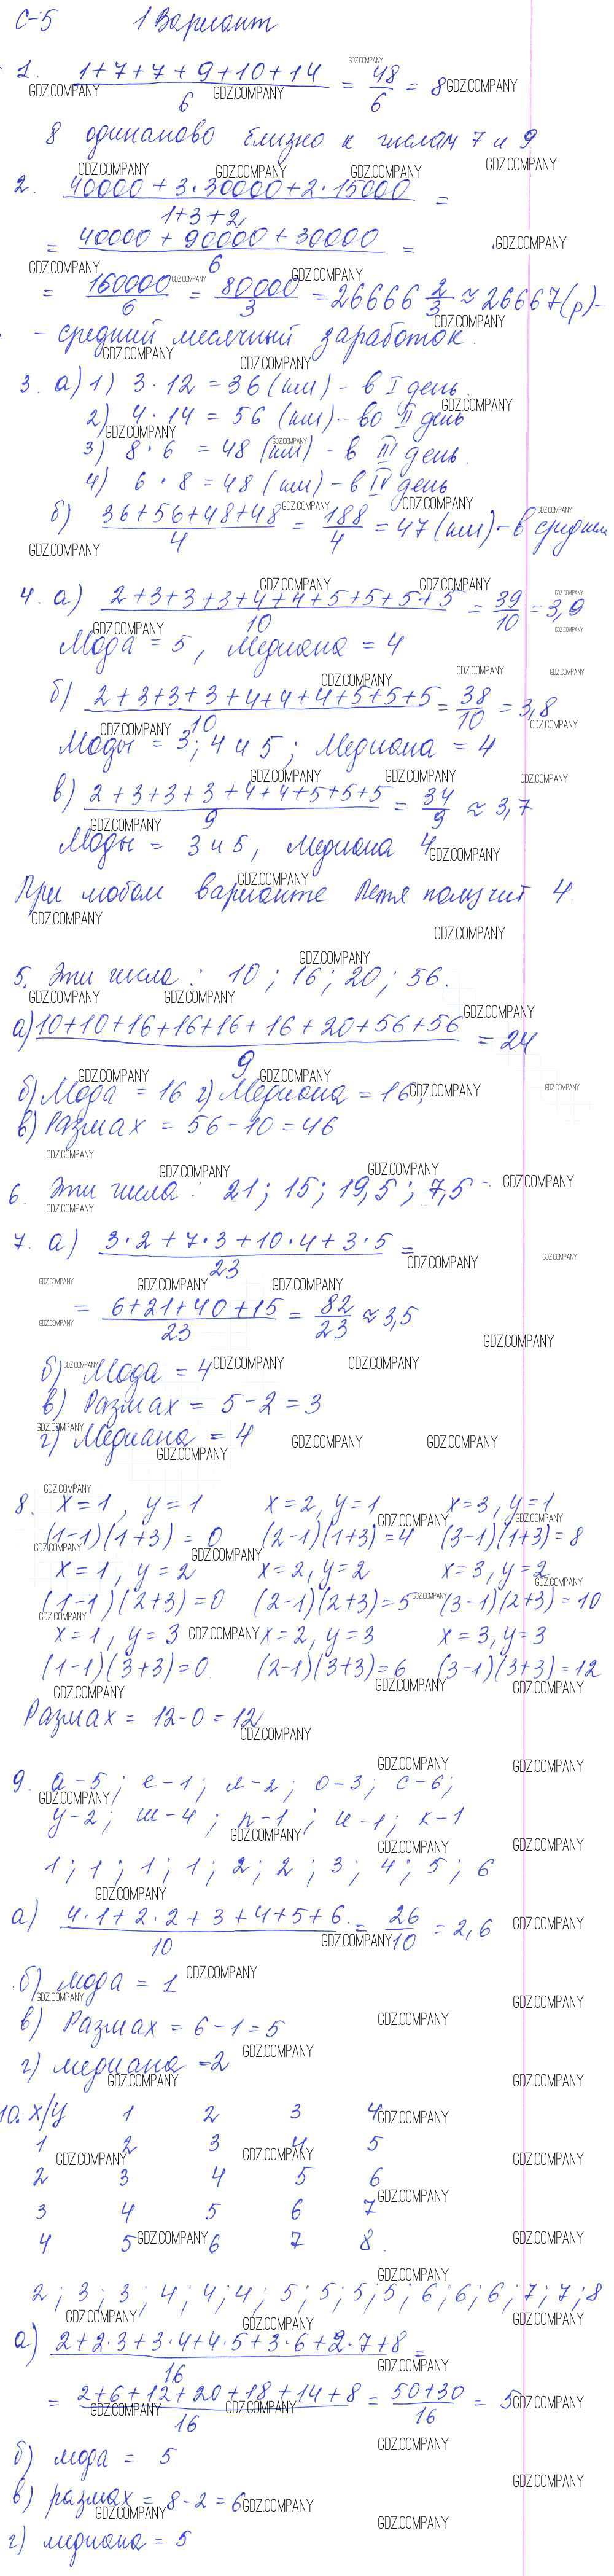 С-5 1 Вариант
1. (1+7+7+9+10+14)/6 = 48/6 = 8
8 одинаково близко к числам 7 и 9
2. (40000 + 3·30000 + 2·15000)/(1+3+2) =
= (40000 + 90000 + 30000)/6 =
= 160000/6 = 80000/3 = 26666 2/3 ≈ 26667 (р) -
- средний месячный заработок.
3. а) 1) 3·12 = 36 (км) - в I день.
2) 4·14 = 56 (км) - во II день
3) 8·6 = 48 (км) - в III день.
4) 6·8 = 48 (км) - в IV день
б) (36+56+48+48)/4 = 188/4 = 47 (км) - в среднем
4. а) (2+3+3+3+4+4+5+5+5+5)/10 = 39/10 = 3,9
Мода = 5, Медиана = 4
б) (2+3+3+3+4+4+4+5+5+5)/10 = 38/10 = 3,8
Моды = 3; 4 и 5; Медиана = 4
в) (2+3+3+3+4+4+5+5+5)/9 = 34/9 ≈ 3,7
Моды = 3 и 5, Медиана 4
При любом варианте Петя получит 4.
5. Эти числа: 10; 16; 20; 56.
а) (10+10+16+16+16+16+20+56+56)/9 = 24
б) Мода = 16 г) Медиана = 16;
в) Размах = 56-10 = 46
6. Эти числа: 21; 15; 19,5; 7,5
7. а) (3·2+7·3+10·4+3·5)/23 =
= (6+21+40+15)/23 = 82/23 ≈ 3,5
б) Мода = 4
в) Размах = 5-2 = 3
г) Медиана = 4
8. x=1, y=1 x=2, y=1 x=3, y=1
(1-1)(1+3)=0 (2-1)(1+3)=4 (3-1)(1+3)=8
x=1, y=2 x=2, y=2 x=3, y=2
(1-1)(2+3)=0 (2-1)(2+3)=5 (3-1)(2+3)=10
x=1, y=3 x=2, y=3 x=3, y=3
(1-1)(3+3)=0. (2-1)(3+3)=6 (3-1)(3+3)=12
Размах = 12-0 = 12
9. а-5; е-1; л-2; о-3; с-6;
у-2; ш-4; п-1; и-1; к-1
1; 1; 1; 1; 2; 2; 3; 4; 5; 6
а) (4·1+2·2+3+4+5+6)/10 = 26/10 = 2,6
б) мода = 1
в) Размах = 6-1 = 5
г) медиана = 2
10. x/y 1 2 3 4
1 2 3 4 5
2 3 4 5 6
3 4 5 6 7
4 5 6 7 8
2; 3; 3; 4; 4; 4; 5; 5; 5; 5; 6; 6; 6; 7; 7; 8
а) (2+2·3+3·4+4·5+3·6+2·7+8)/16 =
= (2+6+12+20+18+14+8)/16 = (50+30)/16 = 5
б) мода = 5
в) размах = 8-2 = 6
г) медиана = 5
GDZ.COMPANY